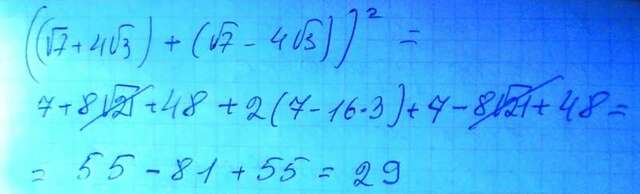 ((√7+4√3)+(√7-4√3))² =
7+8√21+48+2(7-16·3)+7-8√21+48=
= 55-81+55=29